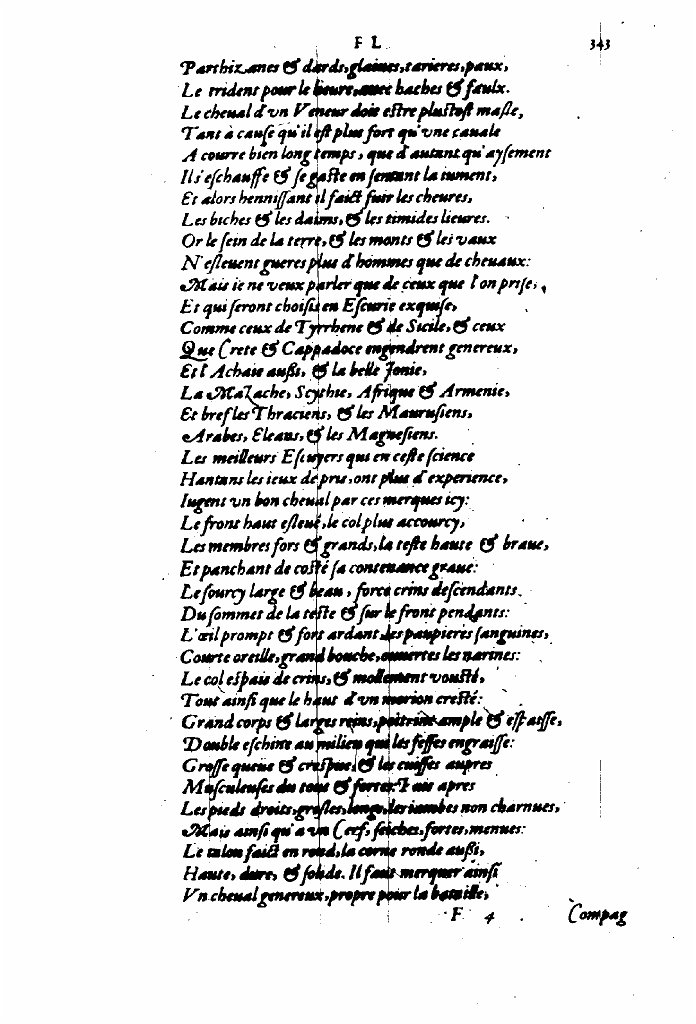 F L
343
Parthizanes & dards, glaiues, tarieres, paux,
Le trident pour le lieure, auec haches & faulx.
Le cheual d'vn Veneur doit estre plustost masle,
Tant à cause qu'il est plus fort qu'vne cauale
A courre bien long temps, que d'autant qu'aysement
Il s'eschauffe & se gaste en sentant la iument,
Et alors hennissant il faict fuir les cheures,
Les biches & les daims, & les timides lieures.
Or le sein de la terre, & les monts & les vaux
N'esleuent gueres plus d'hommes que de cheuaux:
Mais ie ne veux parler que de ceux que l'on prise,
Et qui seront choisis en Escurie exquise,
Comme ceux de Tyrrhene & de Sicile, & ceux
Que Crete & Cappadoce engendrent genereux,
Et l'Achaie außi, & la belle Jonie,
La Mazache, Scythie, Afrique & Armenie,
Et bref les Thraciens, & les Maurusiens,
Arabes, Eleans, & les Magnesiens.
Les meilleurs Escuyers qui en ceste science
Hantans les ieux de pris, ont plus d'experience,
Iugent vn bon cheual par ces merques icy:
Le front haut esleué, le col plus accourcy,
Les membres fors & grands, la teste haute & braue,
Et panchant de costé sa contenance graue:
Le sourcy large & beau, force crins descendants
Du sommet de la teste & sur le front pendants:
L'œil prompt & fort ardant, les paupieres sanguines,
Courte oreille, grand bouche, ouuertes les narines:
Le col espais de crins, & mollement vousté,
Tout ainsi que le haut d'vn morion cresté:
Grand corps & larges reins, poitrine ample & espaisse,
Double eschine au milieu qui les fesses engraisse:
Grosse queue & crespue, & les cuisses aupres
Musculeuses du tout & fortes. Puis apres
Les pieds droits, gresles, longs, les iambes non charnues,
Mais ainsi qu'a vn Cerf, seiches, fortes, menues:
Le talon faict en rond, la corne ronde außi,
Haute, dure, & solide. Il faut merquer ainsi
Vn cheual genereux, propre pour la bataille,
F 4
Compag